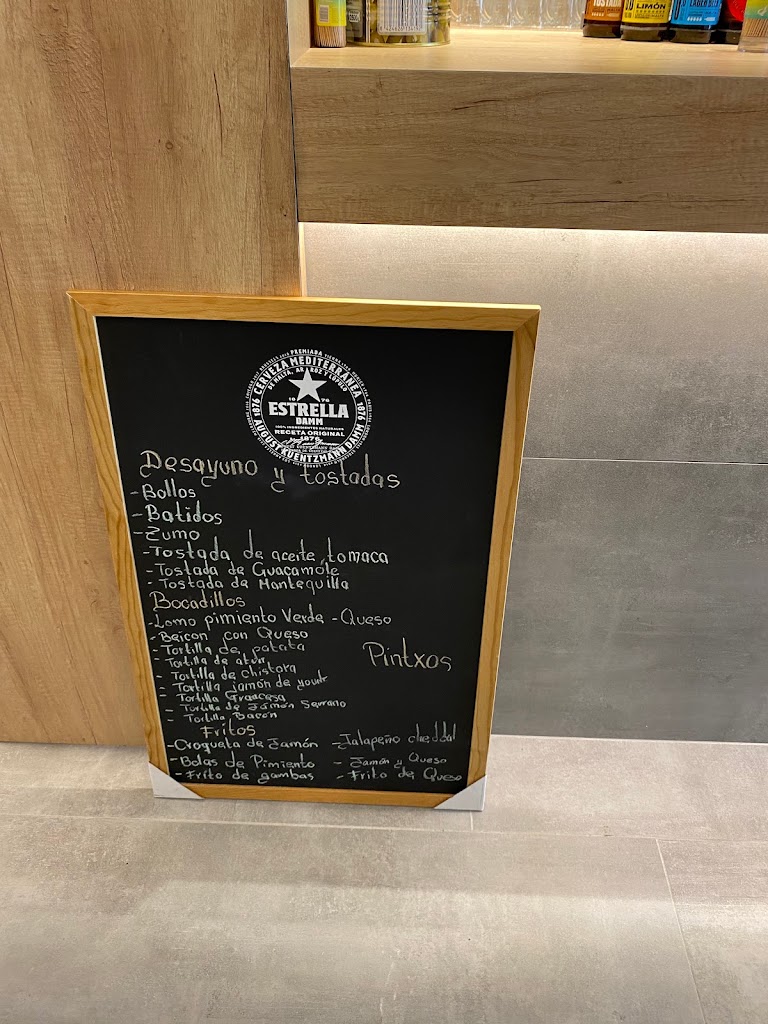 TOSTADA
LIMÓN
PREMIADA
CERVEZA MEDITERRÁNEA
DE MALTA, ARROZ Y LÚPULO
1876
1876
1876
ESTRELLA
DAMM
100% INGREDIENTES NATURALES
RECETA ORIGINAL
1876
AUGUST KUENTZMANN DAMM
Desayuno y tostadas
-Bollos
-Batidos
-Zumo
-Tostada de aceite, tomaca
-Tostada de Guacamole
-Tostada de Mantequilla
Bocadillos
-Lomo pimiento Verde -Queso
-Beicon con Queso
-Tortilla de patata
-Tortilla de atun
Pintxos
-Tortilla de chistora
-Tortilla jamón de york
-Tortilla Francesa
-Tortilla de Jamón Serrano
-Tortilla Bacon
Fritos
-Croqueta de Jamón -Jalapeño cheddal
-Bolas de Pimiento -Jamón y Queso
-Frito de gambas -Frito de Queso